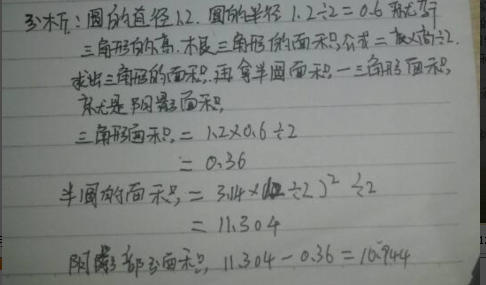 分析：圆的直径1.2. 圆的半径 1.2÷2=0.6 就等于
三角形的高. 根三角形的面积公式=底×高÷2.
求出三角形的面积. 再拿半圆面积一三角形面积,
就是阴影面积.
三角形面积,=1.2×0.6÷2
=0.36
半圆的面积,=3.14×( ÷2)²÷2
=11.304
阴影部分面积, 11.304-0.36=10.944